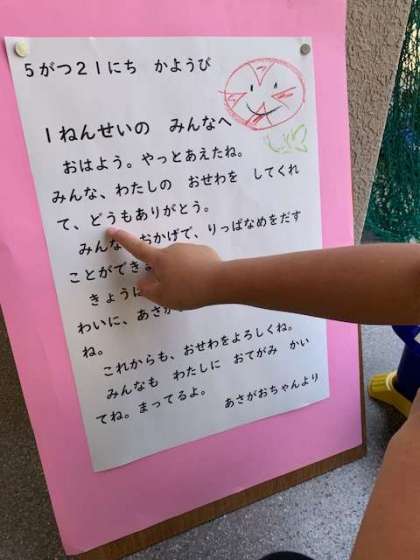 5がつ21にち　かようび
1ねんせいの　みんなへ
おはよう。やっとあえたね。
みんな、わたしの　おせわを　してくれ
て、どうもありがとう。
みんな　おかげで、りっぱなめをだす
ことができま
きょうは
わいに、あさが
ね。
これからも、おせわをよろしくね。
みんなも　わたしに　おてがみ　かい
てね。まってるよ。
あさがおちゃんより